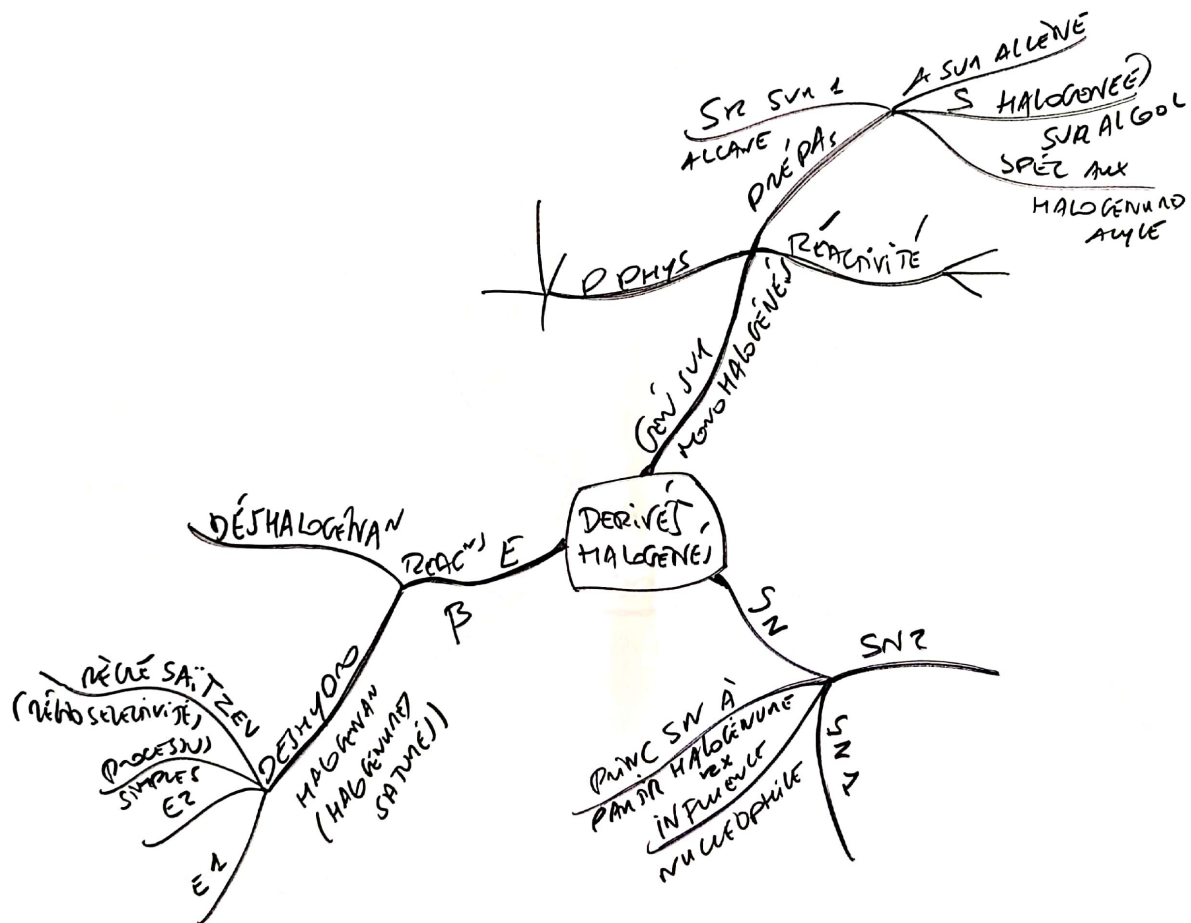 DERIVÉS
HALOGENÉS
GÉN SUR
MONOHALOGÉNÉS
PRÉPAS
SR SUR 1
ALCANE
A SUR ALCÈNE
S HALOGENEE
SUR ALCOOL
SPÉC AUX
HALOGENURD
ALYLE
RÉACTIVITÉ
P PHYS
SN
SN2
SN1
PRINC SN À
PARTIR HALOGÉNURE
RX
INFLUENCE
NUCLÉOPHILE
REAC^NS E
β
DÉSHALOGÉNAN
DESHYDRO
HALOGENAN
(HALOGÉNURES
SATURÉS)
RÈGLE SAÏTZEV
(RÉGIOSELECTIVITÉ)
PROCESSUS
SIMPLES
E2
E1